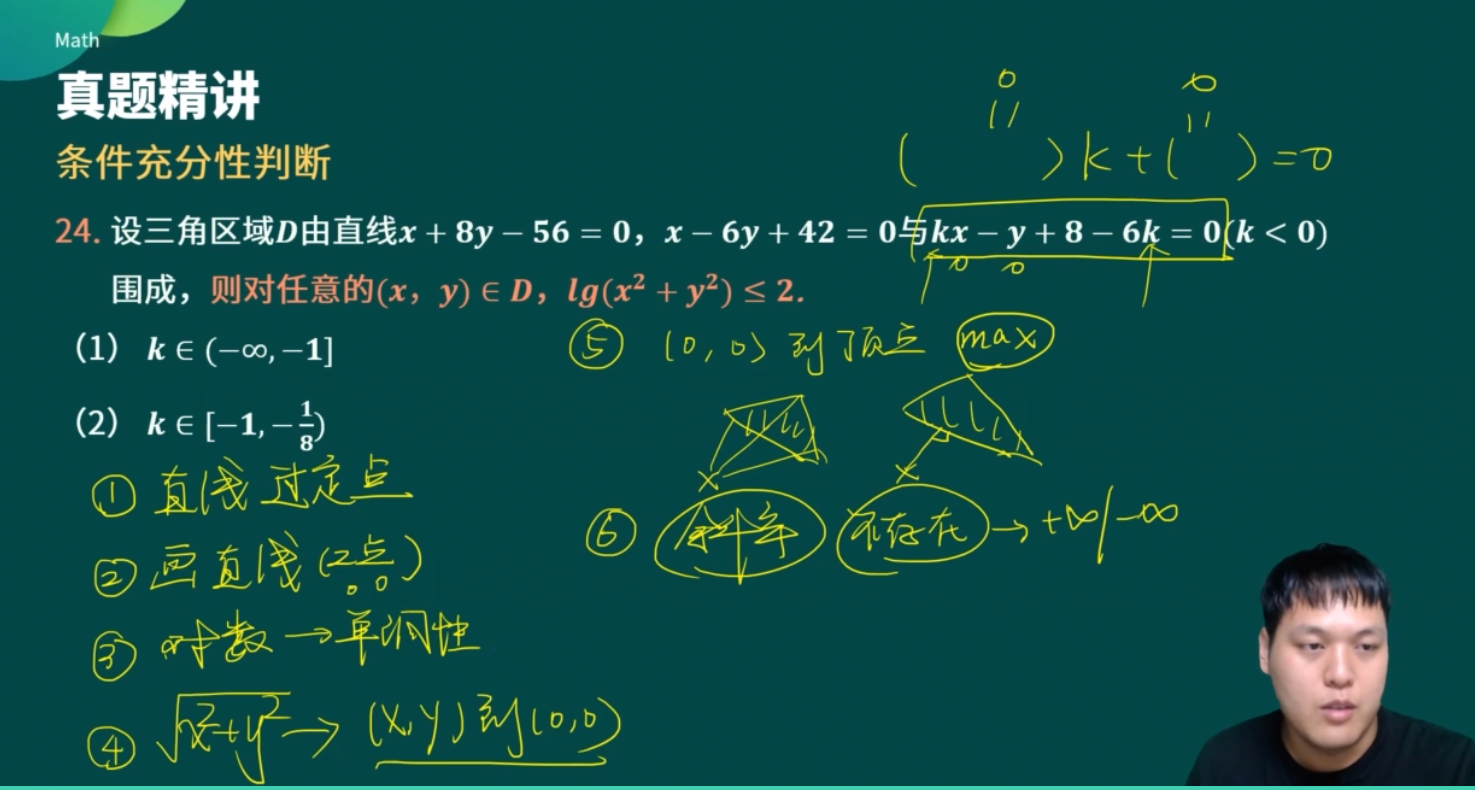 Math
真题精讲
条件充分性判断
24. 设三角区域D由直线x + 8y − 56 = 0，x − 6y + 42 = 0与kx − y + 8 − 6k = 0(k < 0)
围成，则对任意的(x，y) ∈ D，lg(x² + y²) ≤ 2.
（1） k ∈ (−∞, −1]
（2） k ∈ [−1, −1/8)
0 0
|| ||
( )k+( )=0
0 0
① 直线过定点
② 画直线(2点)
③ 对数→单调性
④ √x²+y² → (x,y)到(0,0)
⑤ (0,0)到顶点 max
⑥ 斜率 不存在 → +∞/-∞